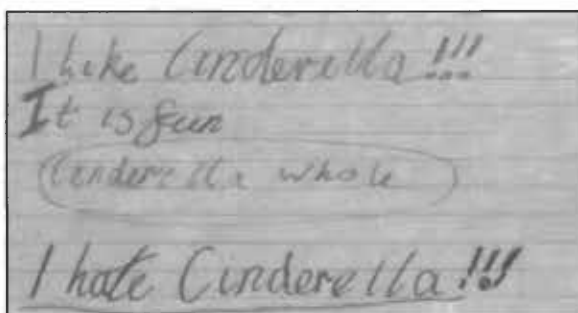 I like Cinderella!!!
It is fun
Cinderella whole
I hate Cinderella!!!